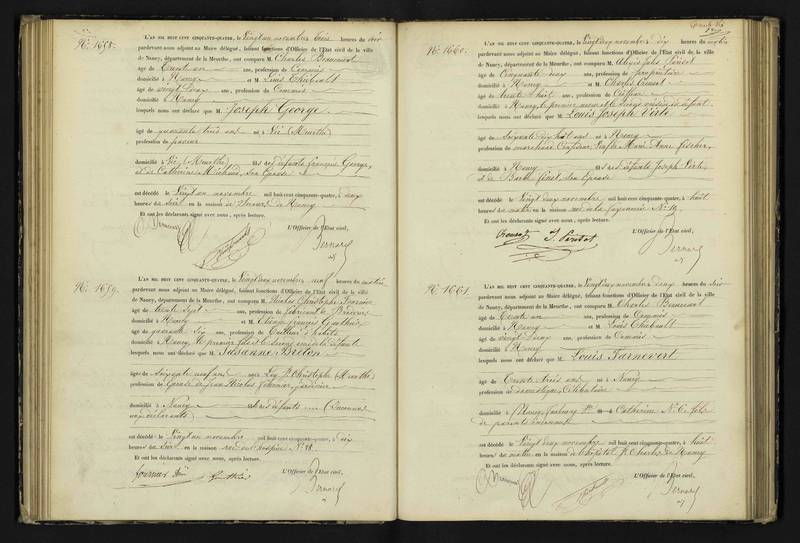 No. 1658.
L'AN MIL HUIT CENT CINQUANTE-QUATRE, le Vingt un novembre trois heures du soir
pardevant nous adjoint au Maire délégué, faisant fonctions d'Officier de l'Etat civil de la ville
de Nancy, département de la Meurthe, ont comparu M. Charles
âgé de trente un ans, profession de Commis
domicilié à Nancy et M. Louis Thiébault
âgé de vingt deux ans, profession de Commis
domicilié à Nancy
lesquels nous ont déclaré que M. Joseph George
âgé de quarante trois ans né à Vic (Meurthe)
profession de
domicilié à Vic (Meurthe) fils des défunts François George,
et de Catherine Michaud, son épouse
est décédé le Vingt un novembre mil huit cent cinquante-quatre, à deux
heures du soir en la maison de Secours de Nancy
Et ont les déclarants signé avec nous, après lecture.
L'Officier de l'Etat civil,
Bernard
No. 1659.
L'AN MIL HUIT CENT CINQUANTE-QUATRE, le Vingt deux novembre neuf heures du matin
pardevant nous adjoint au Maire délégué, faisant fonctions d'Officier de l'Etat civil de la ville
de Nancy, département de la Meurthe, ont comparu M. Nicolas Christophe Fournier
âgé de trente sept ans, profession de fabricant de Broderies
domicilié à Nancy et M. François Gauthier
âgé de quarante six ans, profession de Tailleur d'habits
domicilié à Nancy, le premier fils et le second ami de la défunte
lesquels nous ont déclaré que M. Suzanne Breton
âgée de Soixante neuf ans née à Lay St. Christophe (Meurthe)
profession de veuve de Jean Nicolas Fournier, jardinier
domicilié à Nancy
est décédé le Vingt un novembre mil huit cent cinquante-quatre, à dix
heures du soir en la maison rue de l'hospice No. 88
Et ont les déclarants signé avec nous, après lecture.
L'Officier de l'Etat civil,
fournier
Gauthier
Bernard
No. 1660.
L'AN MIL HUIT CENT CINQUANTE-QUATRE, le Vingt deux novembre dix heures du matin
pardevant nous adjoint au Maire délégué, faisant fonctions d'Officier de l'Etat civil de la ville
de Nancy, département de la Meurthe, ont comparu M. Alexis Jules
âgé de Cinquante deux ans, profession de propriétaire
domicilié à Nancy et M. Charles
âgé de trente huit ans, profession de Coiffeur
domicilié à Nancy, le premier neveu et le second voisin du défunt
lesquels nous ont déclaré que M. Louis Joseph
âgé de Soixante dix huit ans né à Nancy
profession de marchand Marie Anne Fischer,
domicilié à Nancy fils des défunts Joseph
et de son épouse
est décédé le Vingt deux novembre mil huit cent cinquante-quatre, à huit
heures du matin en la maison rue de la No. 14
Et ont les déclarants signé avec nous, après lecture.
L'Officier de l'Etat civil,
Bernard
No. 1661.
L'AN MIL HUIT CENT CINQUANTE-QUATRE, le Vingt deux novembre deux heures du soir
pardevant nous adjoint au Maire délégué, faisant fonctions d'Officier de l'Etat civil de la ville
de Nancy, département de la Meurthe, ont comparu M. Charles
âgé de trente un ans, profession de Commis
domicilié à Nancy et M. Louis Thiébault
âgé de vingt deux ans, profession de Commis
domicilié à Nancy
lesquels nous ont déclaré que M. Louis
âgé de trente trois ans né à Nancy
profession de domestique, Célibataire
domicilié à Nancy, faubourg Ste Catherine No. 6, fils
de parents inconnus
est décédé le Vingt deux novembre mil huit cent cinquante-quatre, à huit
heures du matin en la maison de l'hôpital St. Charles de Nancy
Et ont les déclarants signé avec nous, après lecture.
L'Officier de l'Etat civil,
Bernard